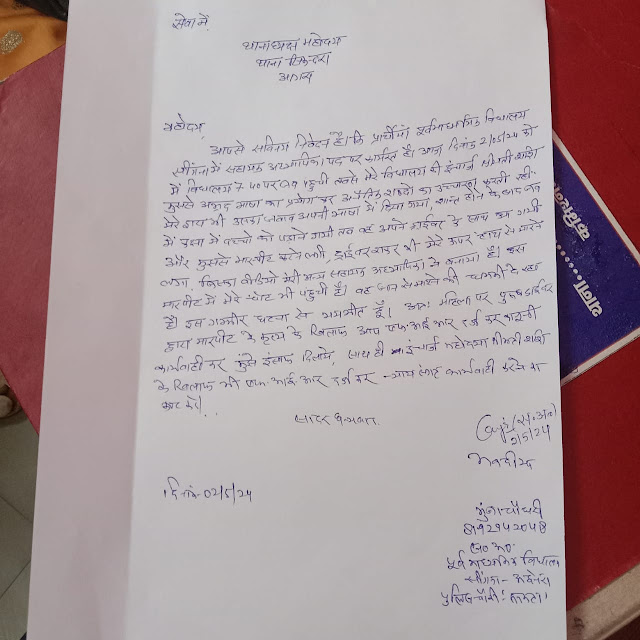 सेवा में,
थानाध्यक्ष महोदय
थाना सिकन्दरा
आगरा
महोदय,
आपसे सविनय निवेदन है। कि प्रार्थीया पूर्वमाध्यमिक विद्यालय
सींगना में सहायक अध्यापिका पद पर कार्यरत है। आज दिनांक 2/05/24 को
मैं विद्यालय 7:40 पर पहुंची तभी मेरे विद्यालय की इंचार्ज श्रीमती शशि
मुझसे अभद्र भाषा का प्रयोग कर अनैतिक शब्दों का उच्चारण करती रही
मेरे द्वारा भी उनका जवाब अपनी भाषा में दिया गया, शान्त होने के बाद जब
मैं कक्षा में बच्चों को पढ़ाने गयी तब वह अपने ड्राईवर के साथ कक्ष गयी
और मुझसे मारपीट करने लगी, ड्राईवर आकर भी मेरे ऊपर हाथ से मारने
लगा, जिसका वीडियो मेरी अन्य सहायक अध्यापिका ने बनाया है। इस
मारपीट में मेरे चोट भी पहुंची है। वह जान से मारने की धमकी दे रहा
है। इस गम्भीर घटना से भयभीत हूँ। अतः महिला पर पुरुष ड्राईवर
द्वारा मारपीट के कृत्य के खिलाफ आप एफ आई आर दर्ज कर कानूनी
कार्यवाही कर मुझे इंसाफ दिलाये, साथ ही इंचार्ज महोदया श्रीमती शशि
के खिलाफ भी एफ. आई. आर दर्ज कर न्याय संगत कार्यवाही करने का
कष्ट करें।
सादर धन्यवाद.
(स.अ.)
2/5/24
भवदीय
दिनांक-02/5/24
गुंजा चौधरी
8192942048
स० अ०
पूर्व माध्यमिक विद्यालय
सींगना - अछनेरा
पुलिस चौकी: रुनकता।
थाना.